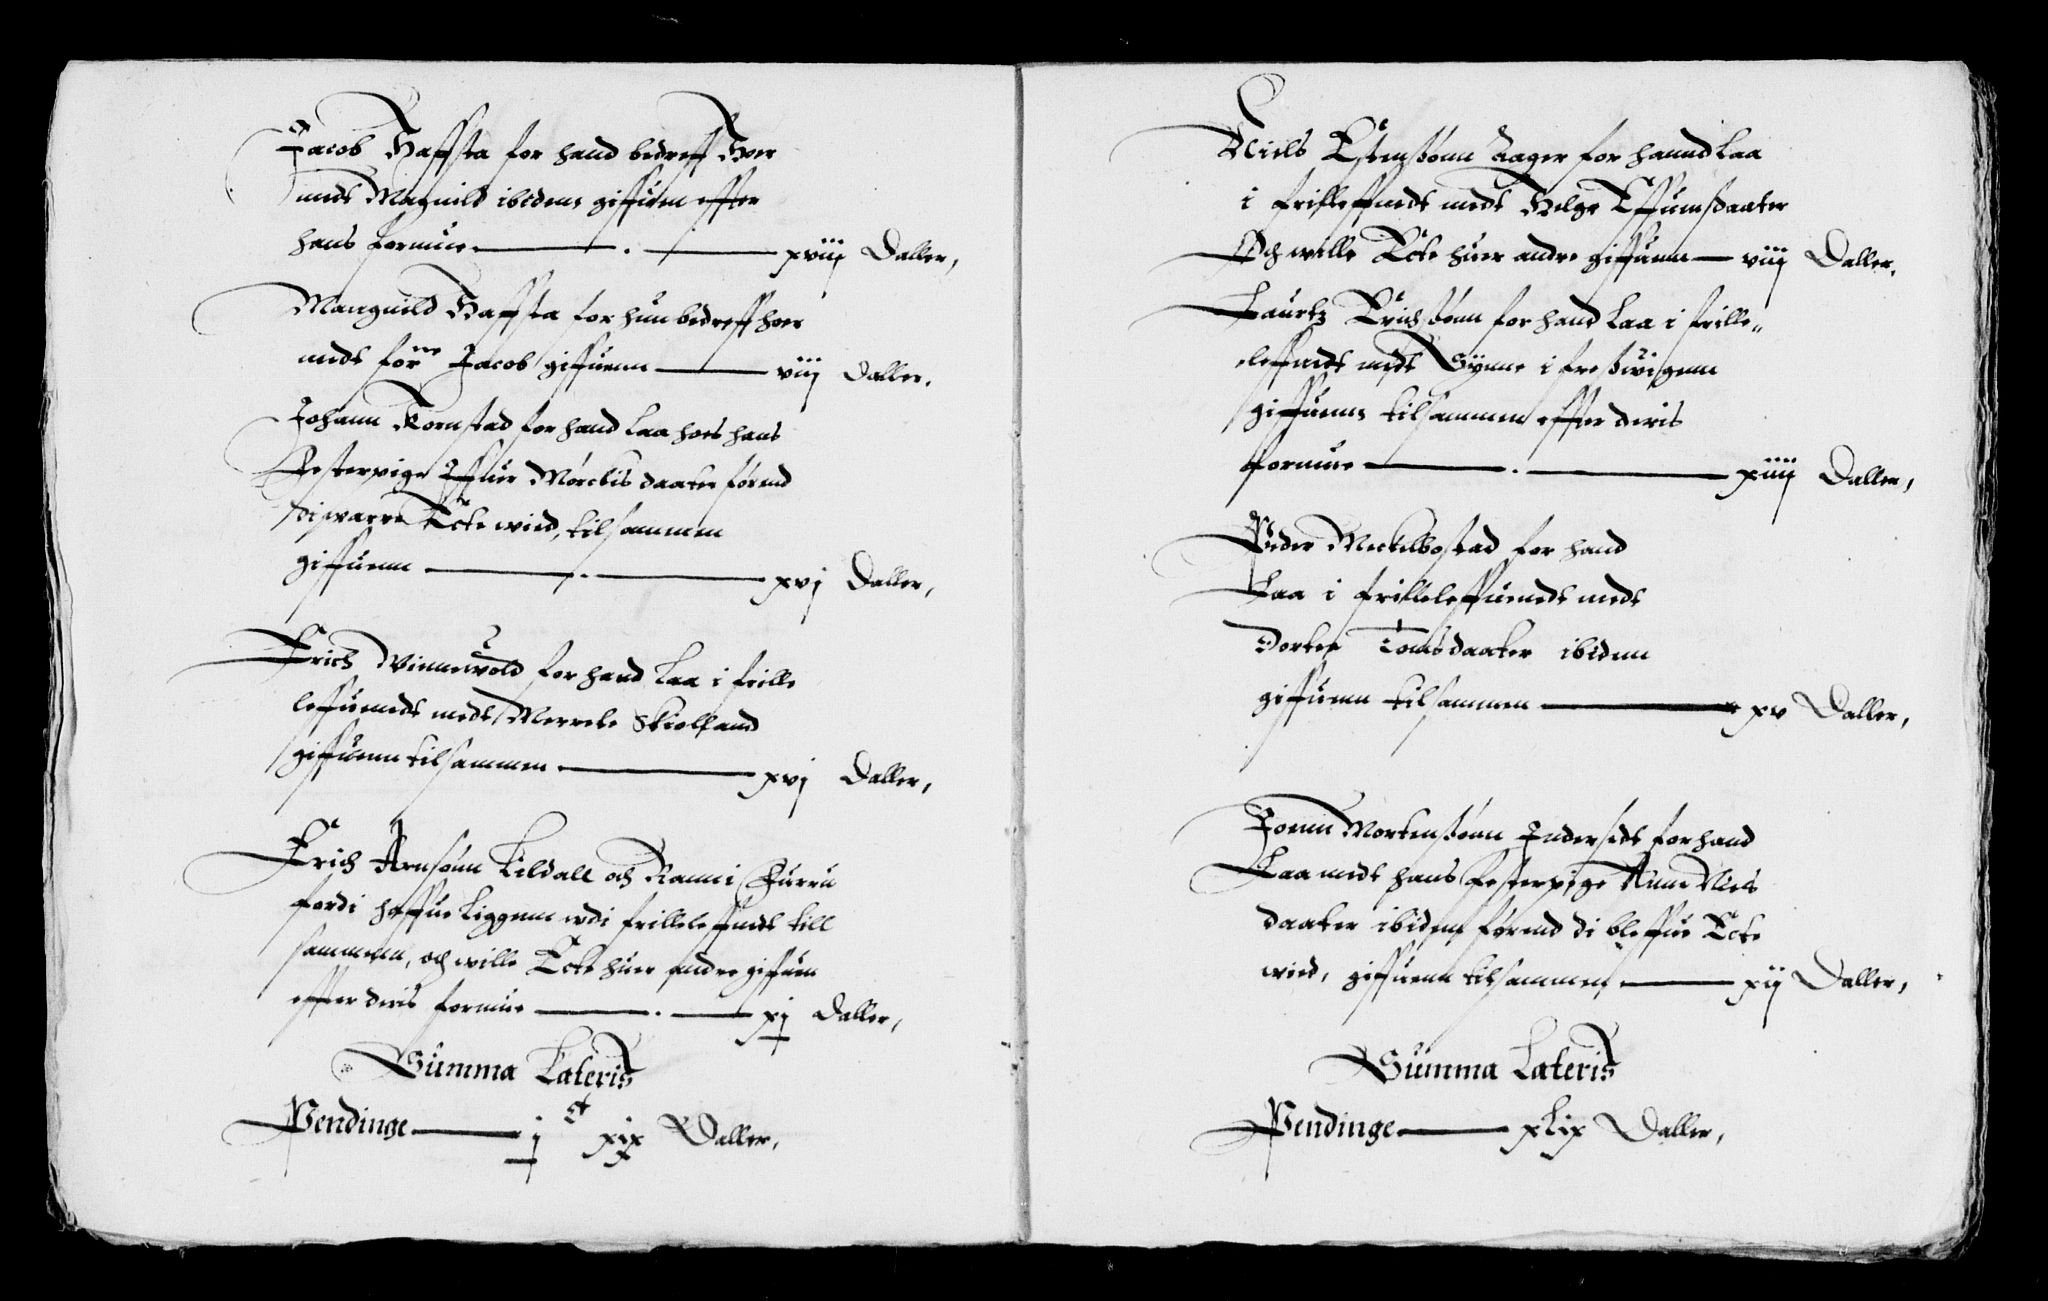 Jacob Haffsta for hand bedreff Hoer
medt Magnild ibidem giffuen effter
hans formue xviij Daller,
Mangnild Haffsta for hun bedreff hoer
medt for^ne Jacob giffuenn viij Daller,
Johann Tornstad for hand laa hoes hans
Festerpige Iffuer Mørckis daater førend
di ware Ecte wied, tilsammen
giffuenn xvj Daller,
Erich Winnewold for hand laa i frille
leffuenedt medt Merrete Skiolland
giffuenn tilsammen xvj Daller,
Erich Arnsønn Kildall och Ranni Hurru
fordi haffue liggenn wdi frilleleffnedt till
sammenn, och wille Ecte huer andre giffuen
effter deris formue xj Daller,
Summa Lateris
Pendinge j C xix Daller,
Niels Estensønn Aager for hannd laa
i frilleffnedt medt Helge Effuensdaater
Och wille Ecte huer andre giffuenn viij Daller,
Laurtz Erichsønn for hand laa i frille
leffnedt medt Synne i Fresuigenn
giffuenn tilsammen effter deris
formue xiiij Daller,
Peder Meckelbostad for hand
laa i frilleleffuenedt medt
Dorten Tomsdaater ibidem
giffuenn tilsammen xv Daller,
Jonn Mortensønn Indersedt for hand
laa medt hans festerpige Anne Niels
daater ibidem førend di bleffue Ecte
wied, giffuenn tilsammen xij Daller,
Summa Lateris
Pendinge xlix Daller,